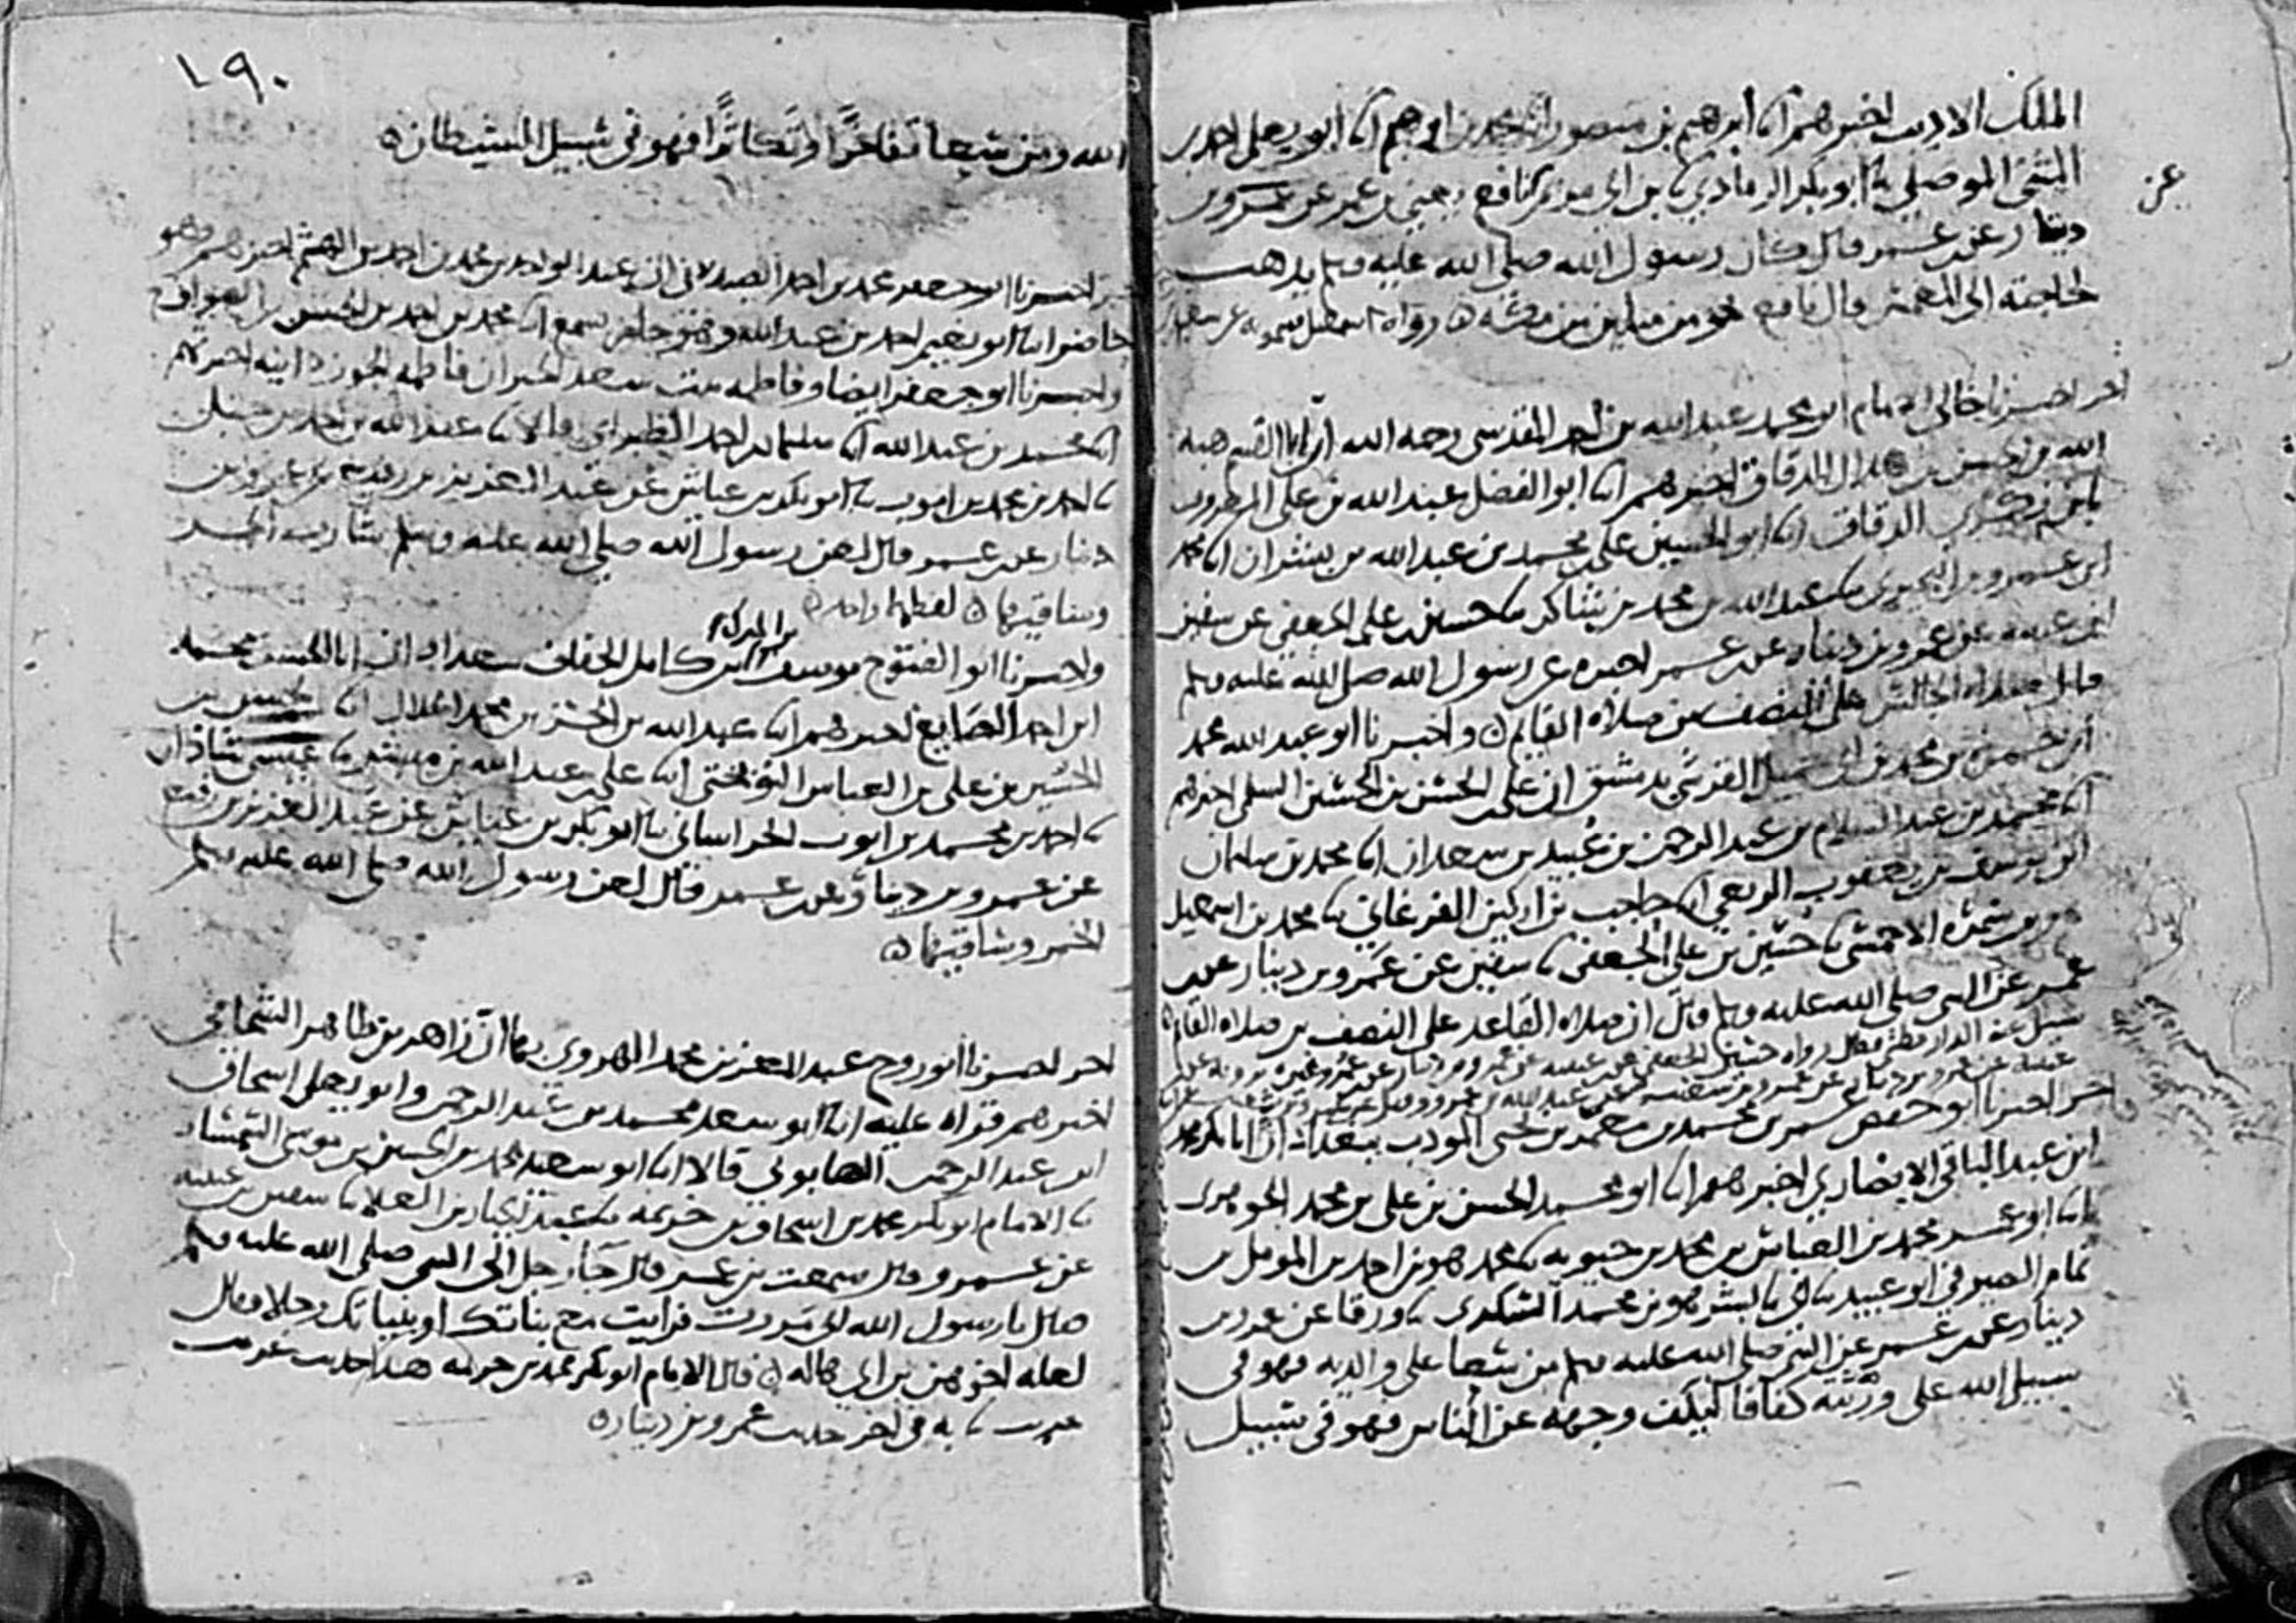 الملك الاديب اخبرهم انا ابرهيم بن منصور انا محمد بن ابرهيم انا ابو يعلى احمد بن
المثنى الموصلي نا ابو بكر الرمادي نا بن ابي مريم نا نافع يعني بن عمر عن عمرو بن
عن
دينار عن بن عمر قال كان رسول الله صلى الله عليه وسلم يذهب
لحاجته الى المغمس قال نافع نحو من ميلين من مكة رواه اسمعيل سمويه عن سعيد
اخر اخبرنا خالي الامام ابو محمد عبد الله بن احمد المقدسي رحمه الله ان ابا القسم هبة
الله بن الحسن بن هلال الدقاق اخبرهم انا ابو الفضل عبد الله بن علي
بن زكري الدقاق انا ابو الحسين علي بن محمد بن عبد الله بن بشران انا محمد
ابن عمرو بن البختري نا عبد الله بن محمد بن شاكر نا حسين بن علي الجعفي عن سفين
ابن عيينه عن عمرو بن دينار عن بن عمر عن رسول الله صلى الله عليه وسلم
قال صلاه الجالس على النصف من صلاه القايم ه واخبرنا ابو عبد الله محمد
ابن حمزة بن محمد بن ابي جميل القرشي بدمشق ان علي بن الحسن بن الحسين السلمي اخبرهم
انا محمد بن عبد السلام بن عبد الرحمن بن عبيد بن سعدان انا محمد بن سليمان
ابن يوسف بن يعقوب الربعي انا حاجب بن اركين الفرغاني نا محمد بن اسمعيل
بن سمرة الاحمسي نا حسين بن علي الجعفي نا سفين عن عمرو بن دينار عن بن
عمر عن النبي صلى الله عليه وسلم قال ان صلاه القاعد على النصف من صلاه القايم
سيل عنه الدارقطني فقال رواه حسين الجعفي عن بن عيينه عن عمرو بن دينار عن بن عمر وغيره يرويه عن بن
عيينه عن عمرو بن دينار عن عبد الله بن عمرو
اخر اخبرنا ابو حفص عمر بن محمد بن معمر بن يحيى المودب ببغداد ان ابا بكر محمد
ابن عبد الباقي الانصاري اخبرهم انا ابو محمد الحسن بن علي بن محمد الجوهري
انا ابو عمر محمد بن العباس بن محمد بن حيويه نا محمد هو بن احمد بن المومل بن
تمام الصيرفي ابو عبيد نا ابي نا بشر هو بن محمد السكري نا ورقا عن عمرو بن
دينار عن بن عمر عن النبي صلى الله عليه وسلم من سعا على والديه فهو في
سبيل الله على ورثته كفافا ليكف وجهه عن الناس فهو في سبيل
١٩٠
الله ومن سعا تفاخرا او تكاثرا فهو في سبيل الشيطان ه
اخبرنا ابو جعفر محمد بن احمد الصيدلاني ان عبد الواحد بن محمد بن احمد بن الهيثم اخبرهم وهو
حاضر انا ابو نعيم احمد بن عبد الله وهو حاضر يسمع انا محمد بن احمد بن الحسن بن الصواف ح
واخبرنا ابو جعفر ايضا وفاطمة بنت سعد الخير ان فاطمة الجوزدانيه اخبرتهم
انا محمد بن عبد الله انا سليمان بن احمد الطبراني قالا نا عبد الله بن احمد بن حنبل
نا احمد بن محمد بن ايوب نا ابو بكر بن عياش عن عبد العزيز بن رفيع عن عمرو بن
دينار عن بن عمر قال لعن رسول الله صلى الله عليه وسلم شارب الخمر
وساقيها ه لفظهما واحد ه
واخبرنا ابو الفتوح يوسف بن المبارك بن كامل الخفاف ببغداد ان ابا الحسن محمد
ابن احمد الصايغ اخبرهم انا عبد الله بن الحسن بن محمد الخلال انا الحسن بن
الحسين بن علي بن العباس النوبختي انا علي بن عبد الله بن مبشر نا عيسى بن شاذان
نا احمد بن محمد بن ايوب الخراساني نا ابو بكر بن عياش عن عبد العزيز بن رفيع
عن عمرو بن دينار عن بن عمر قال لعن رسول الله صلى الله عليه وسلم
الخمر وساقيها ه
اخر اخبرنا ابو روح عبد المعز بن محمد الهروي بها ان زاهر بن طاهر الشحامي
اخبرهم قراه عليه انا ابو سعد محمد بن عبد الرحمن وابو يعلى اسحاق
ابن عبد الرحمن الصابوني قالا انا ابو سعيد محمد بن الحسين بن موسى السمسار
نا الامام ابو بكر محمد بن اسحاق بن خزيمه نا عبد الجبار بن العلا نا سفين بن عيينه
عن عمرو قال سمعت بن عمر قال جا رجل الى النبي صلى الله عليه وسلم
فقال يا رسول الله اني مررت فرايت مع بناتك او بنياتك رجلا فقال
لعله اخوهن بن ابي هاله ه قال الامام ابو بكر محمد بن خزيمه هذا حديث غريب
غريب نا به في اخر حديث عمرو بن دينار ه